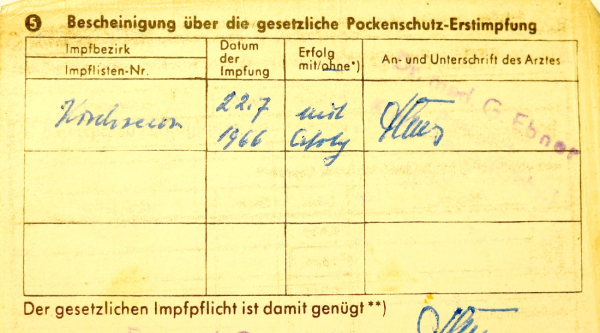 5 Bescheinigung über die gesetzliche Pockenschutz-Erstimpfung
Impfbezirk
Impflisten-Nr.
Datum der Impfung
Erfolg mit/ohne*)
An- und Unterschrift des Arztes
Kirchseeon
22.7 1966
mit Erfolg
Dr. med. G. Ebner
Der gesetzlichen Impfpflicht ist damit genügt **)